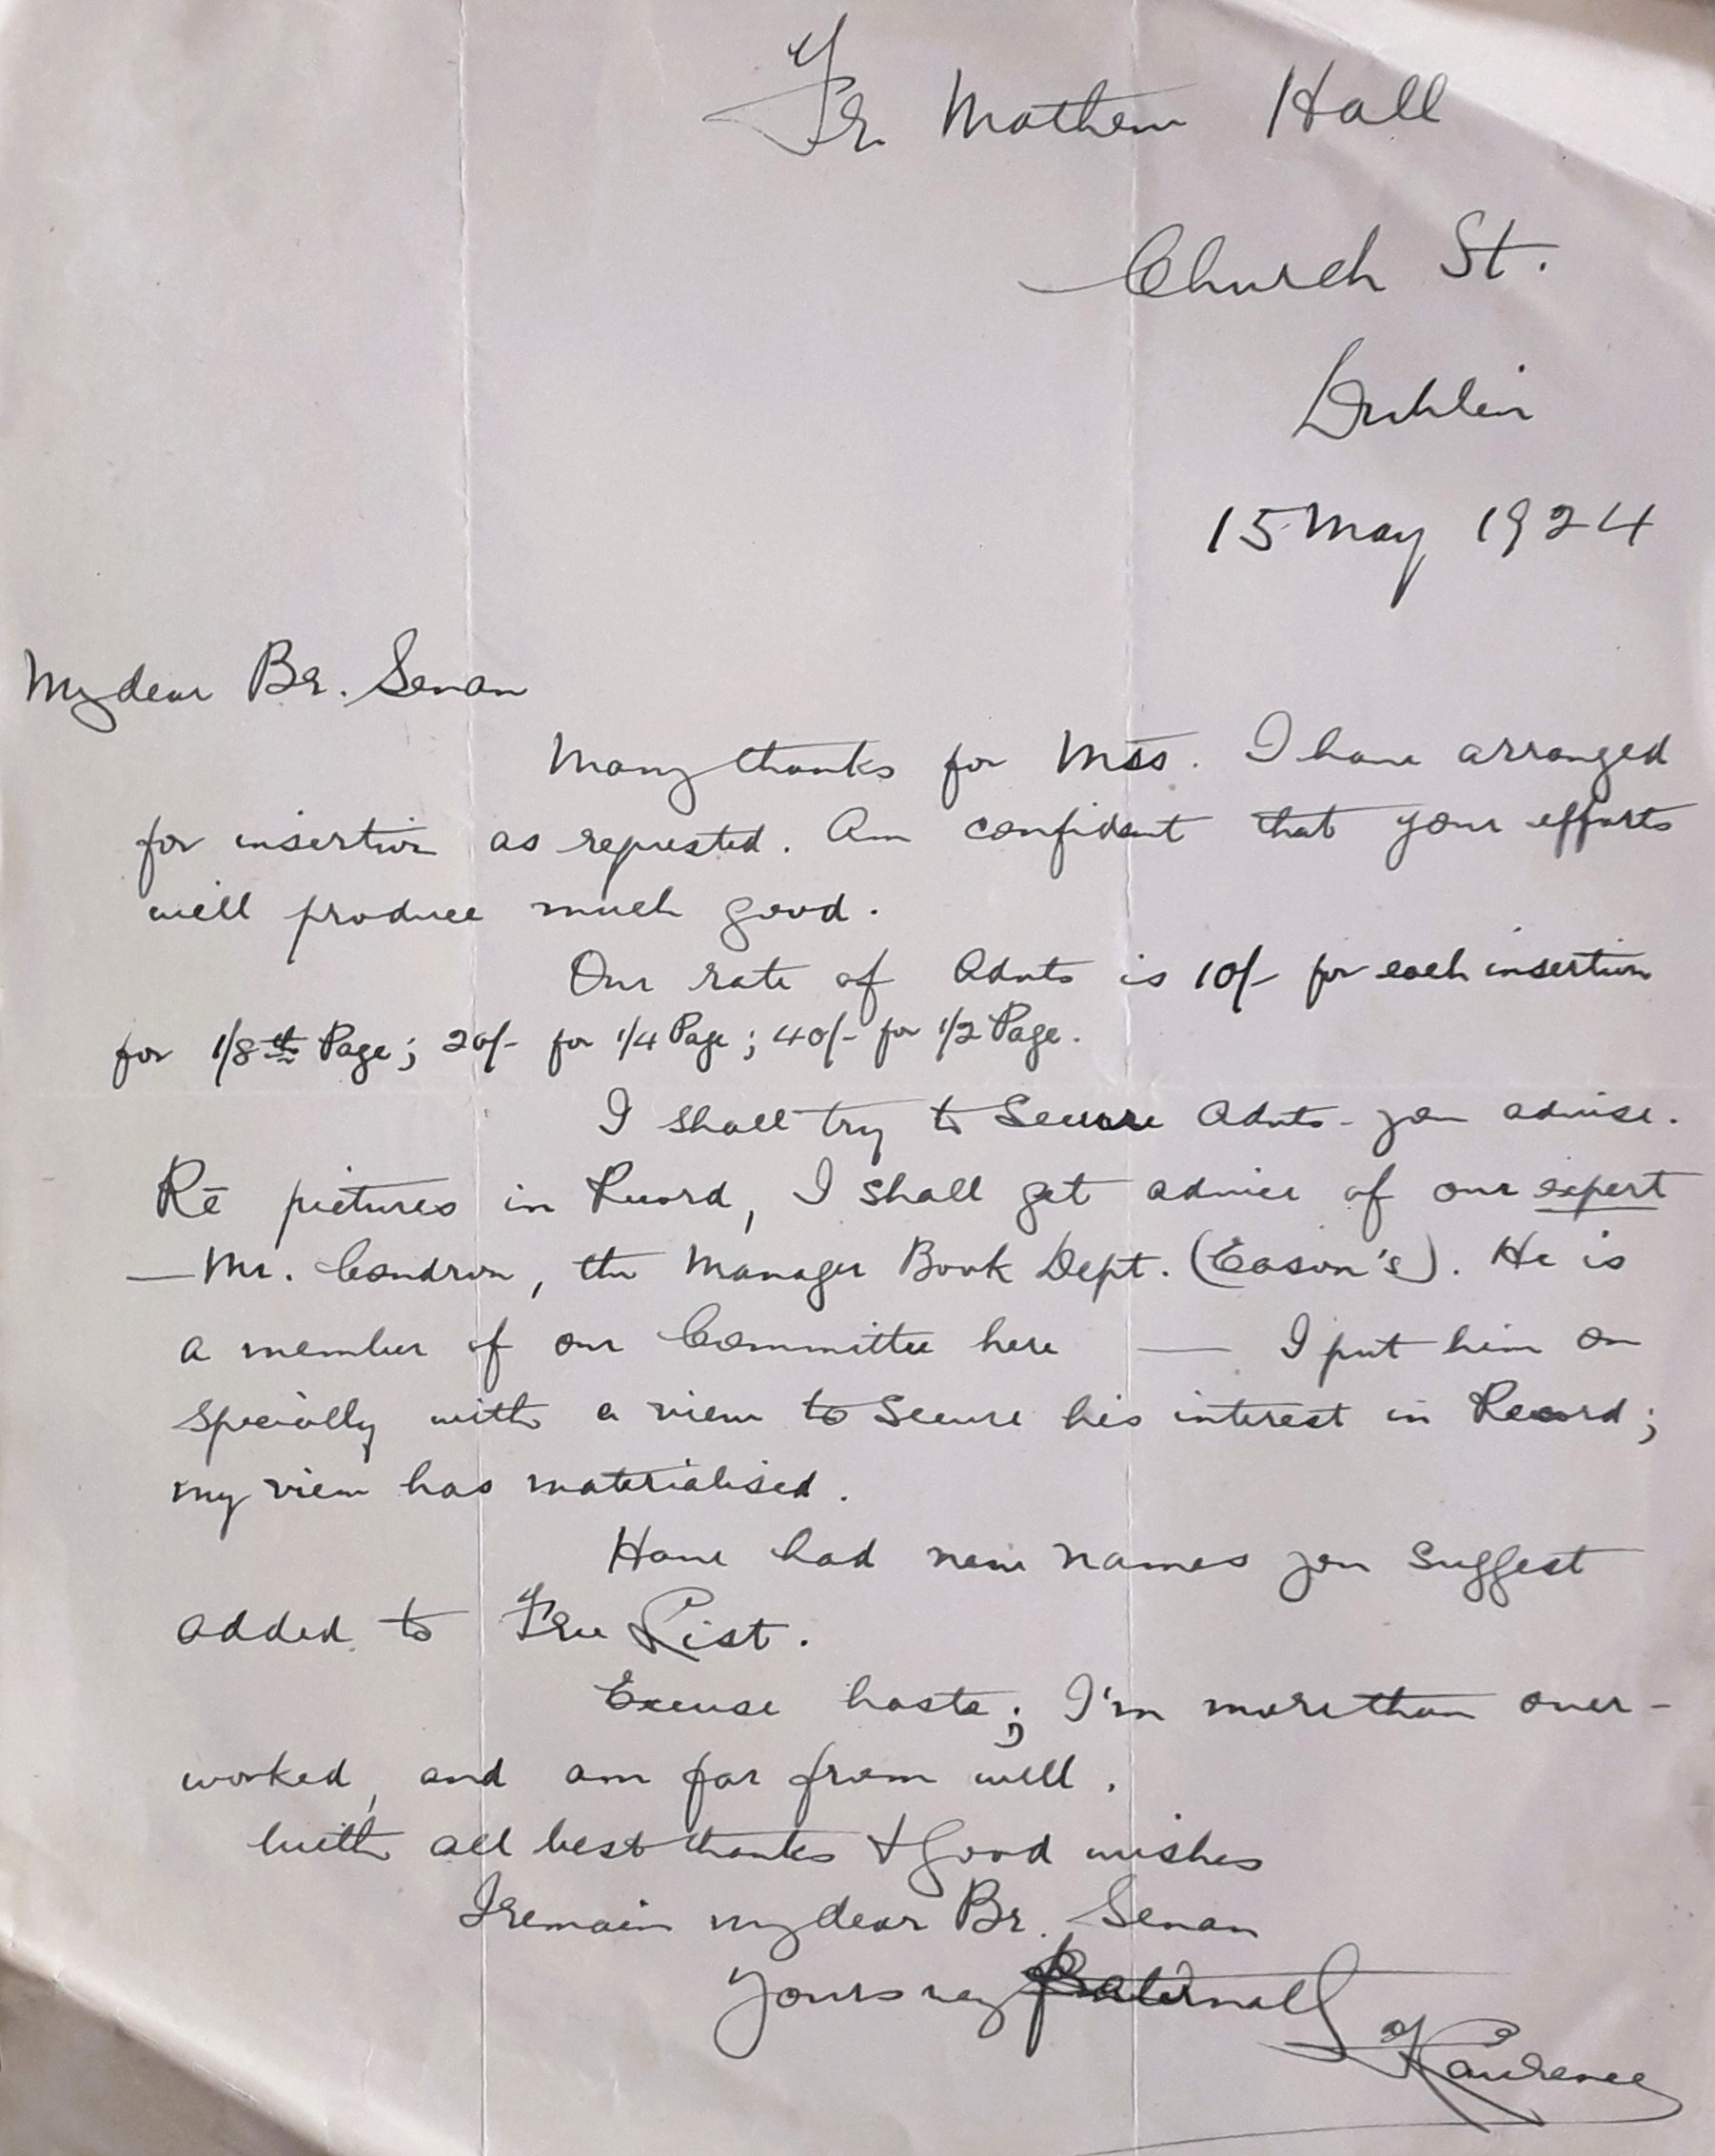 Fr. Mathew Hall
Church St.
Dublin
15 May 1924
My dear Br. Senan
Many thanks for Mss. I have arranged
for insertion as requested. Am confident that your efforts
will produce much good.
Our rate of Advts is 10/- for each insertion
for 1/8th Page; 20/- for 1/4 Page; 40/- for 1/2 Page.
I shall try to secure Advts. you advise.
Re pictures in Record, I shall get advice of our expert
— Mr. Condron, the Manager Book Dept. (Eason's). He is
a member of our Committee here — I put him on
specially with a view to secure his interest in Record;
my view has materialised.
Have had new names you suggest
added to Free List.
Excuse haste; I'm more than over-
worked, and am far from well.
With all best thanks & good wishes
I remain my dear Br. Senan
Yours very fraternally
Fr Laurence